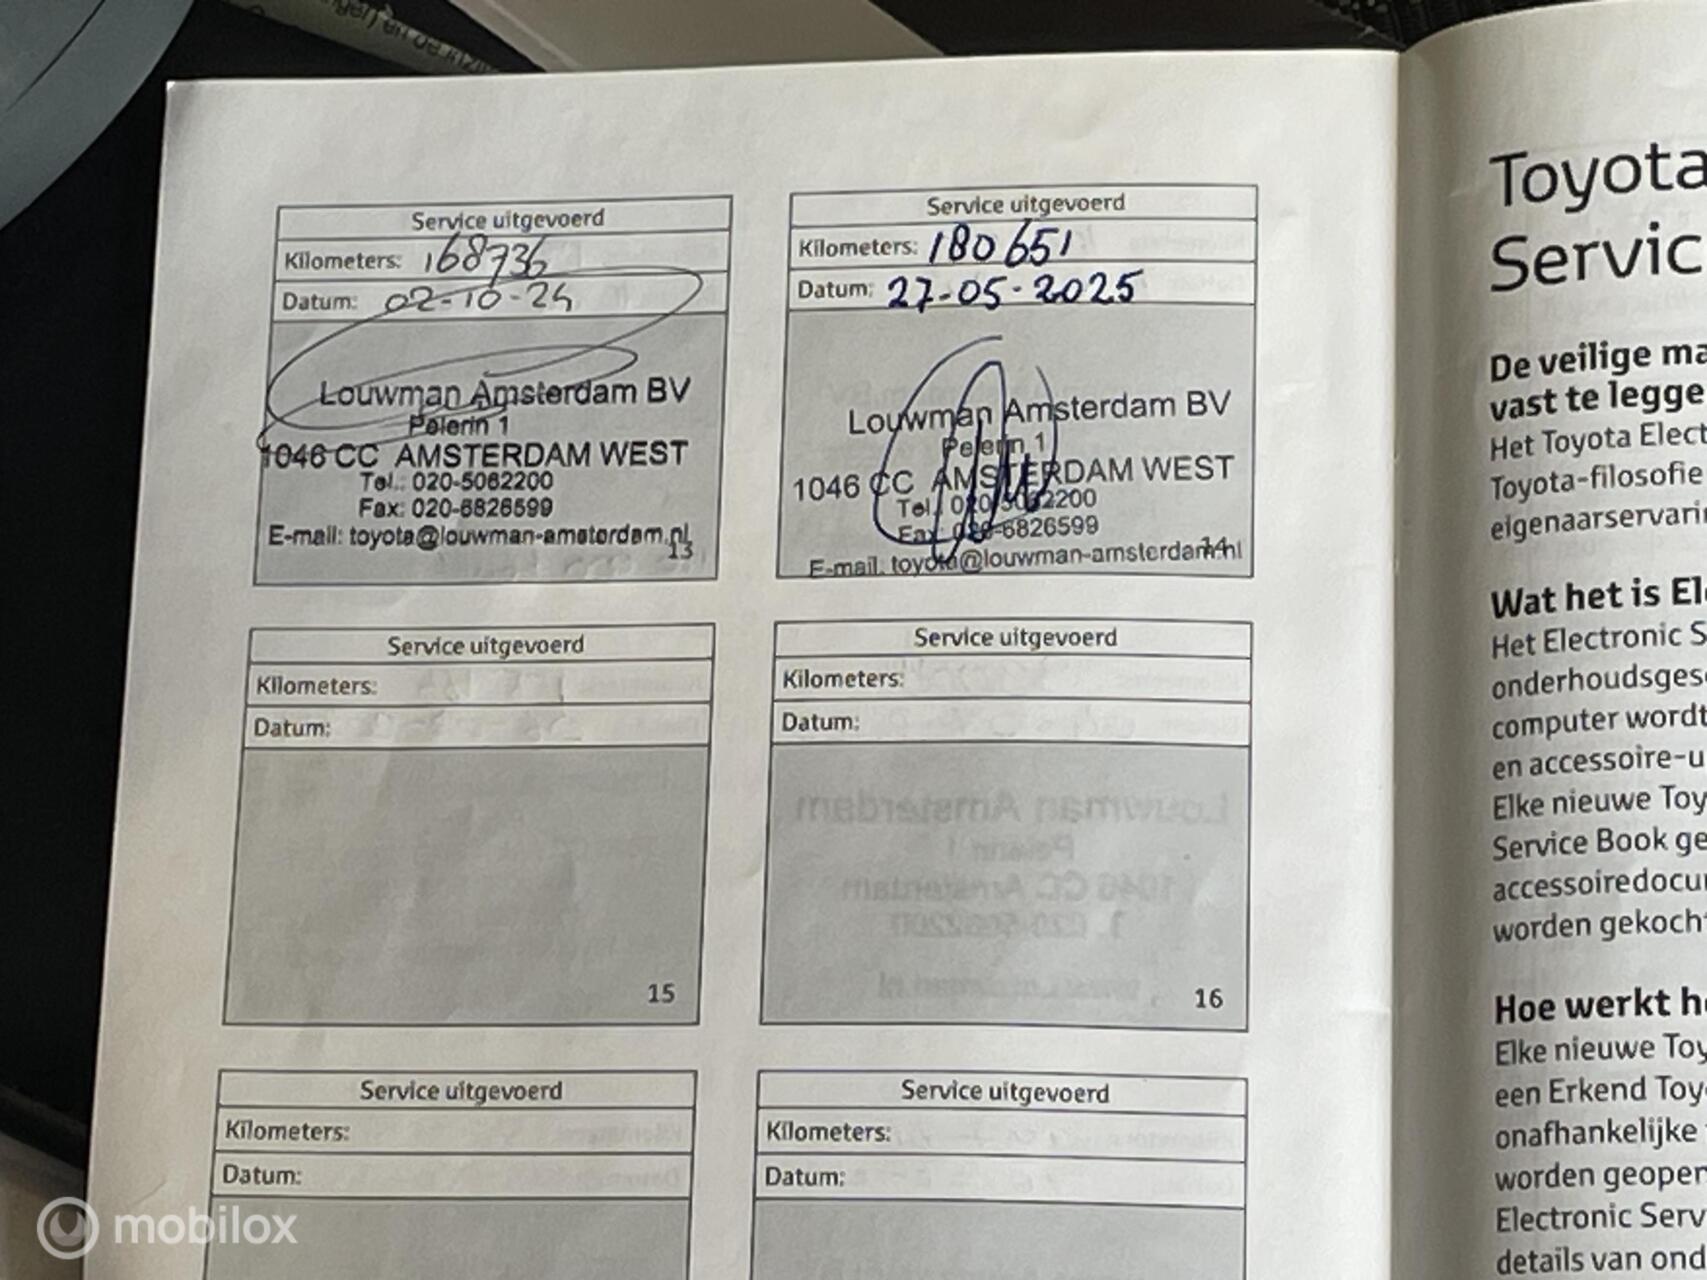 Service uitgevoerd
Kilometers: 168736
Datum: 02-10-24
Louwman Amsterdam BV
Pelerin 1
1046 CC AMSTERDAM WEST
Tel.: 020-5062200
Fax: 020-6826599
E-mail: toyota@louwman-amsterdam.nl
13
Service uitgevoerd
Kilometers: 180651
Datum: 27-05-2025
Louwman Amsterdam BV
Pelerin 1
1046 CC AMSTERDAM WEST
Tel.: 020-5062200
Fax: 020-6826599
E-mail: toyota@louwman-amsterdam.nl
14
Service uitgevoerd
Kilometers:
Datum:
15
Service uitgevoerd
Kilometers:
Datum:
16
Service uitgevoerd
Kilometers:
Datum:
Service uitgevoerd
Kilometers:
Datum:
Toyota
Servic
De veilige ma
vast te legge
Het Toyota Elect
Toyota-filosofie
eigenaarservarin
Wat het is El
Het Electronic S
onderhoudsges
computer wordt
en accessoire-u
Elke nieuwe Toy
Service Book ge
accessoiredocu
worden gekoch
Hoe werkt h
Elke nieuwe Toy
een Erkend Toy
onafhankelijke
worden geopen
Electronic Serv
details van ond
mobilox